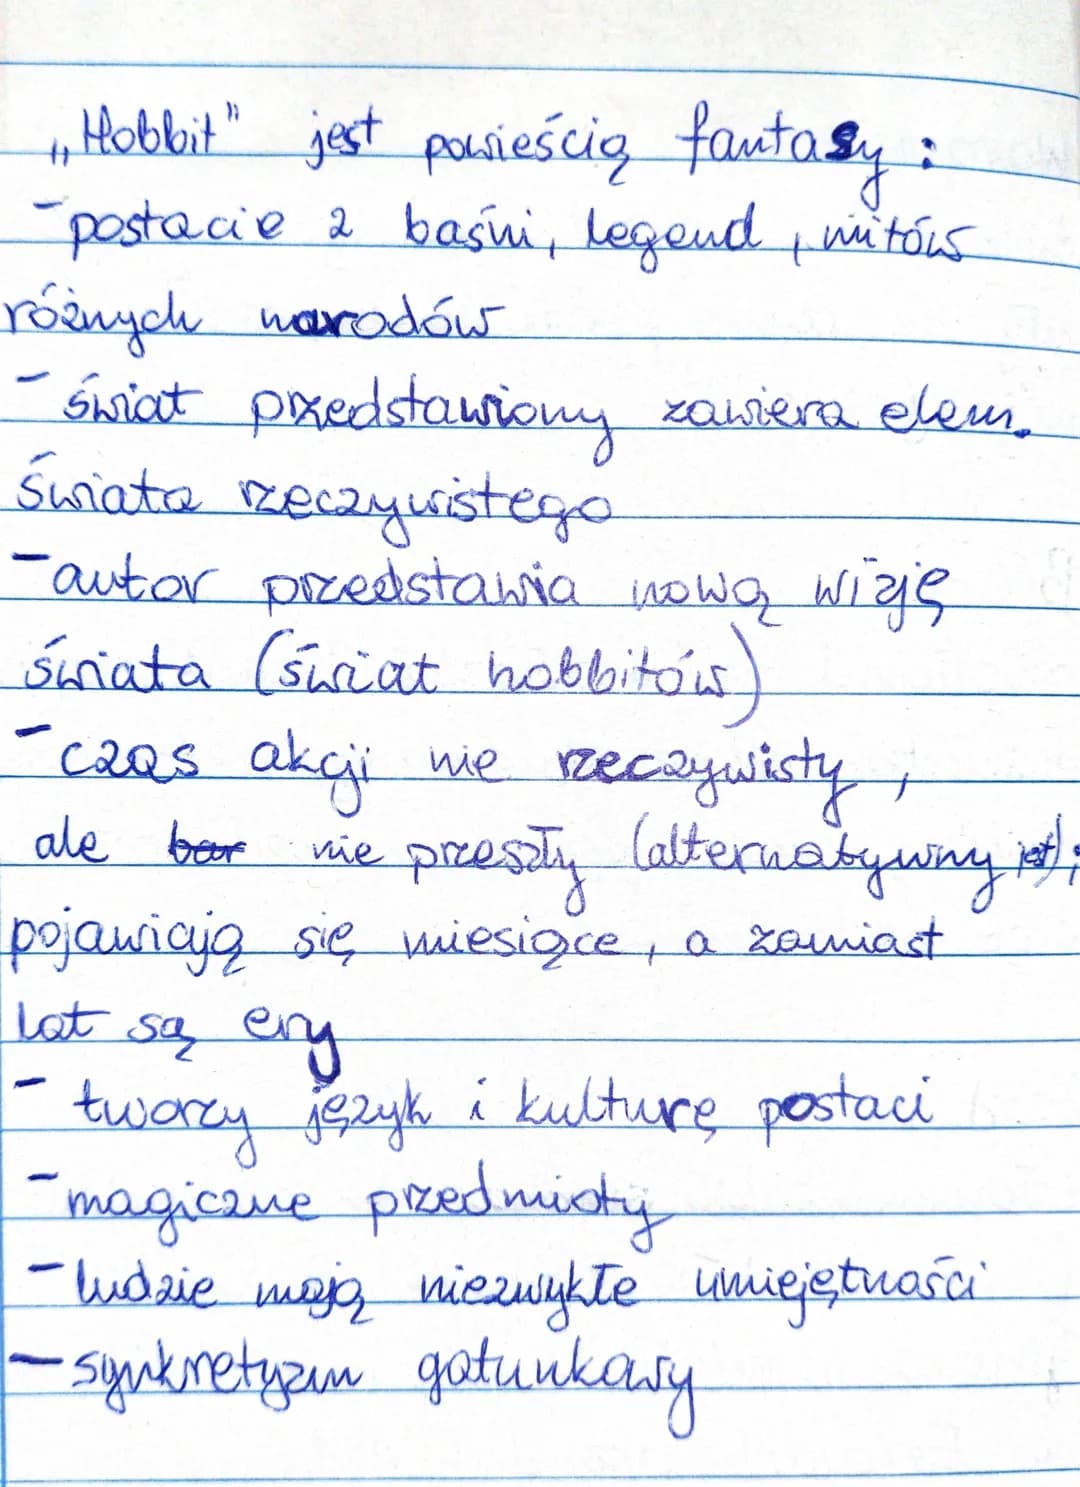 „Hobbit" jest powieścią fantasy:
- postacie z baśni, legend, mitów
różnych narodów
- świat przedstawiony zawiera elem.
świata rzeczywistego
- autor przedstawia nową wizję
świata (świat hobbitów)
- czas akcji nie rzeczywisty,
ale bar nie przeszły (alternatywny jest);
pojawiają się miesiące, a zamiast
lat są ery
- tworzy język i kulturę postaci
- magiczne przedmioty
- ludzie mają niezwykłe umiejętności
- synkretyzm gatunkowy